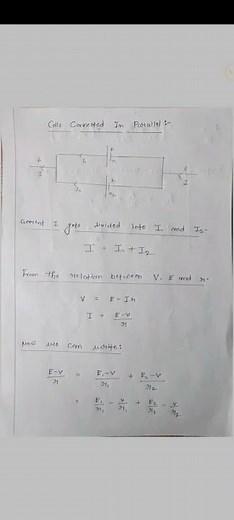 Cells Connected In Parallel :-
I₁
I
I
I₂
Current I gets divided into I₁ and I₂-
I = I₁ + I₂
From the relation between V, E and r-
V = E - Ir
I = E-V/r
Now we can write:
E-V/r = E₁-V/r₁ + E₂-V/r₂
= E₁/r₁ - V/r₁ + E₂/r₂ - V/r₂